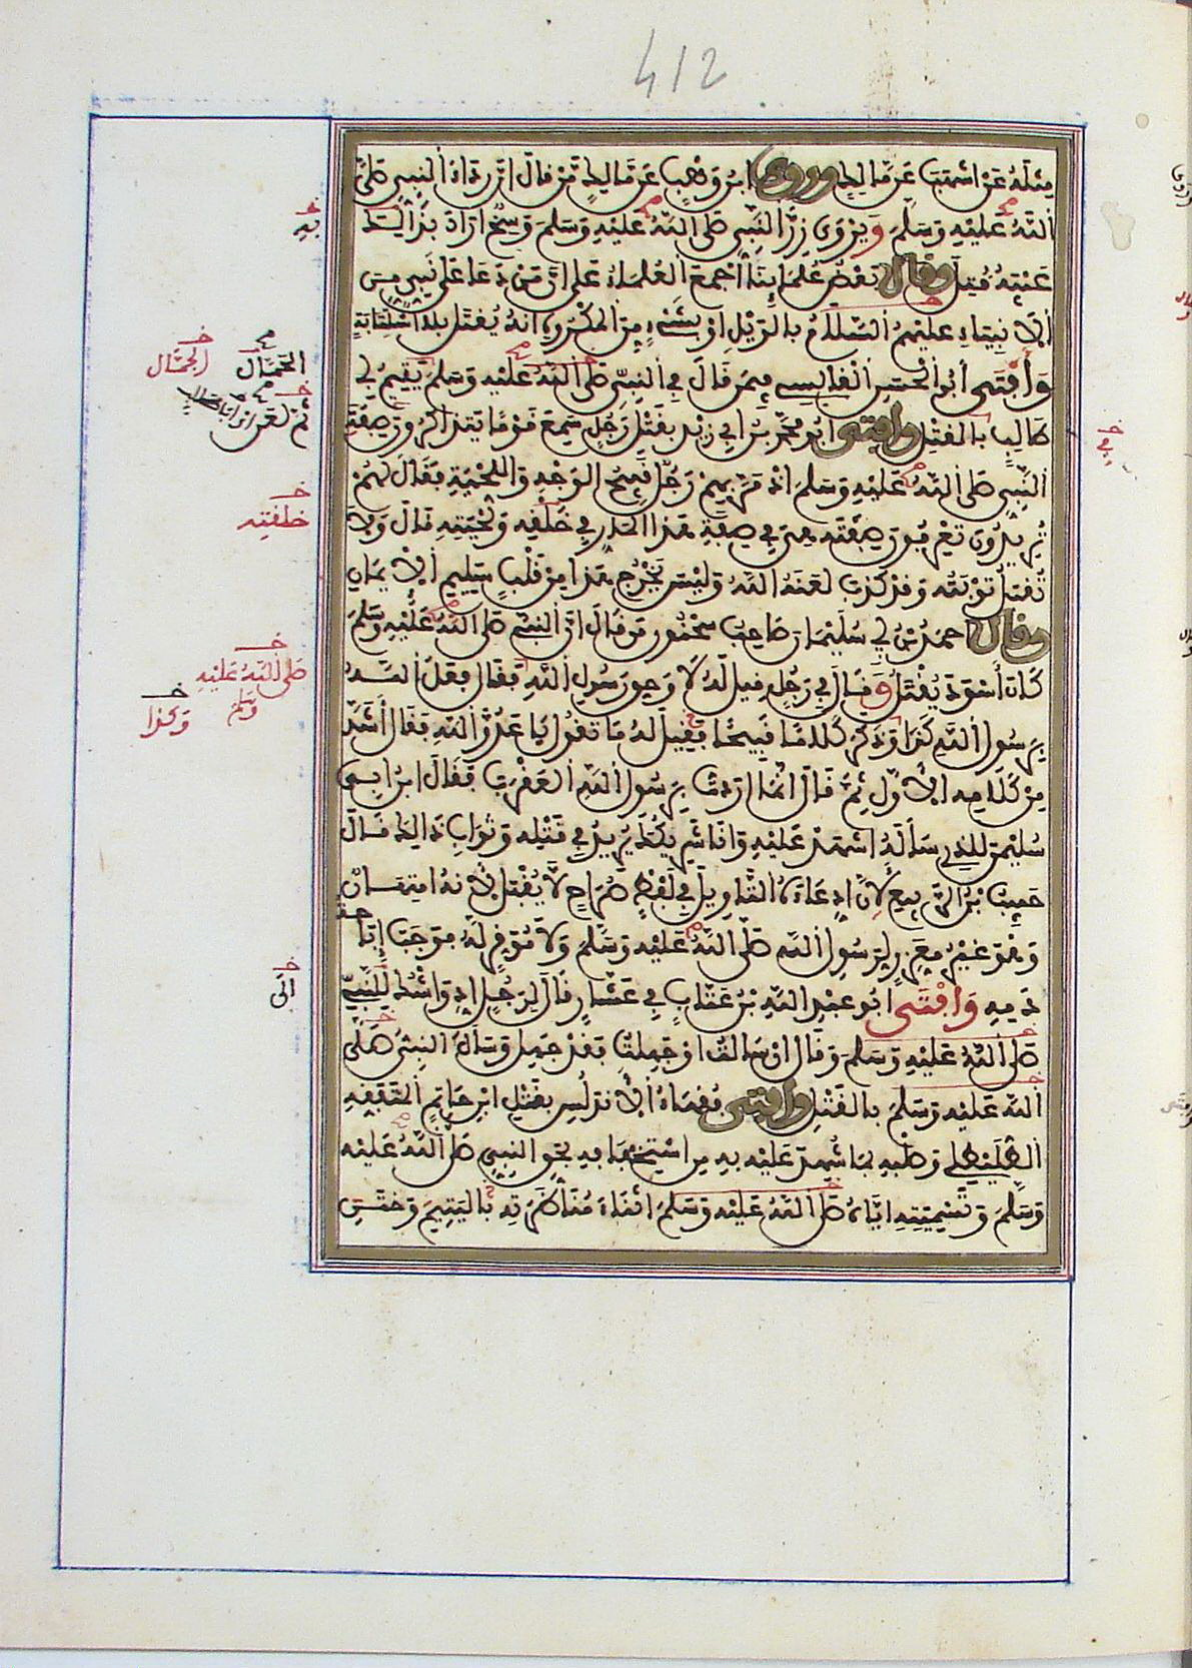 412
مِثْلَهُ عَنْ اشْهَبَ عَنْ مَّالِكٍ وروى ابْنُ وَهْبٍ عَنْ مَّالِكٍ مَنْ قَالَ انَّ رِدَاءَ النَّبِيِّ صَلَّى
اللَّهُ عَلَيْهِ وَسَلَّمَ وَيُرْوَى زِرَّ النَّبِيِّ صَلَّى اللَّهُ عَلَيْهِ وَسَلَّمَ وَسِخٌ ارَادَ بِذَالِكَ
عَيْبَهُ قُتِلَ وقال بَعْضُ عُلَمَائِنَا اجْمَعَ الْعُلَمَاءُ عَلَى انَّ مَنْ دَعَا عَلَى نَبِيٍّ مِنَ
الْأَنْبِيَاءِ عَلَيْهِمُ السَّلَامُ بِالْوَيْلِ اوْ بِشَيْءٍ مِنَ الْمَكْرُوهِ انَّهُ يُقْتَلُ بِلَا اسْتِتَابَةٍ
وَأَفْتَى أَبُو الْحَسَنِ الْقَابِسِي فِيمَنْ قَالَ فِي النَّبِيِّ صَلَّى اللَّهُ عَلَيْهِ وَسَلَّمَ يَتِيمُ أَبِي
طَالِبٍ بِالْقَتْلِ وافتى ابُو مُحَمَّدِ بْنُ ابِي زَيْدٍ بِقَتْلِ رَجُلٍ سَمِعَ قَوْمًا يَتَذَاكَرُونَ صِفَةَ
النَّبِيِّ صَلَّى اللَّهُ عَلَيْهِ وَسَلَّمَ اذْ مَرَّ بِهِمْ رَجُلٌ قَبِيحُ الْوَجْهِ وَاللِّحْيَةِ فَقَالَ لَهُمْ
تُرِيدُونَ تَعْرِفُونَ صِفَتَهُ هِيَ فِي صِفَةِ هَذَا الْمَارِّ فِي خَلْقِهِ وَلِحْيَتِهِ قَالَ وَلَا
تُقْبَلُ تَوْبَتُهُ وَقَدْ كَذَبَ لَعَنَهُ اللَّهُ وَلَيْسَ يَخْرُجُ هَذَا مِنْ قَلْبٍ سَلِيمِ الْإِيمَانِ
وقال احْمَدُ بْنُ أَبِي سُلَيْمَانَ صَاحِبُ سَحْنُونٍ مَنْ قَالَ انَّ النَّبِيَّ صَلَّى اللَّهُ عَلَيْهِ وَسَلَّمَ
كَانَ أَسْوَدَ يُقْتَلُ وَقَالَ فِي رَجُلٍ قِيلَ لَهُ لَا وَحَقِّ رَسُولِ اللَّهِ فَقَالَ فَعَلَ اللَّهُ
بِرَسُولِ اللَّهِ كَذَا وَذَكَرَ كَلَامًا قَبِيحًا فَقِيلَ لَهُ مَا تَقُولُ يَا عَدُوَّ اللَّهِ فَقَالَ أَشَدَّ
مِنْ كَلَامِهِ الْأَوَّلِ ثُمَّ قَالَ انَّمَا ارَدْتُ بِرَسُولِ اللَّهِ الْعَقْرَبَ فَقَالَ ابْنُ ابِي
سُلَيْمَنَ لِلَّذِي سَأَلَهُ اشْهَدْ عَلَيْهِ وَانَا شَرِيكُكَ يُرِيدُ فِي قَتْلِهِ وَثَوَابِ ذَالِكَ قَالَ
حَبِيبُ بْنُ الرَّبِيعِ لِأَنَّ ادِّعَاءَهُ التَّأْوِيلَ فِي لَفْظٍ صُرَاحٍ لَّا يُقْبَلُ لِأَنَّهُ امْتِهَانٌ
وَهُوَ غَيْرُ مُعَزِّرٍ لِرَسُولِ اللَّهِ صَلَّى اللَّهُ عَلَيْهِ وَسَلَّمَ وَلَا مُوَقِّرٍ لَهُ فَوَجَبَ إِبَاحَةُ
دَمِهِ وَافْتَى ابُو عَبْدِ اللَّهِ بْنُ عَتَّابٍ فِي عَشَّارٍ قَالَ لِرَجُلٍ ادِّ وَاشْكُ لِلنَّبِيِّ
صَلَّى اللَّهُ عَلَيْهِ وَسَلَّمَ وَقَالَ انْ سَأَلْتُ اوْ جَهِلْتُ فَقَدْ جَهِلَ وَسَأَلَ النَّبِيُّ صَلَّى
اللَّهُ عَلَيْهِ وَسَلَّمَ بِالْقَتْلِ وافتى فُقَهَاءُ الْأَنْدَلُسِ بِقَتْلِ ابْنِ حَاتِمٍ الْمُتَفَقِّهِ
الطُّلَيْطُلِي وَصَلْبِهِ بِمَا شُهِدَ عَلَيْهِ بِهِ مِنِ اسْتِخْفَافِهِ بِحَقِّ النَّبِيِّ صَلَّى اللَّهُ عَلَيْهِ
وَسَلَّمَ وَتَسْمِيَتِهِ ايَّاهُ صَلَّى اللَّهُ عَلَيْهِ وَسَلَّمَ اثْنَاءَ مُنَاظَرَتِهِ بِالْيَتِيمِ وَخَتَنِ
به
الحمّال
الجمّال
خلقته
صلى الله عليه
وسلم
وكذا
الى
في